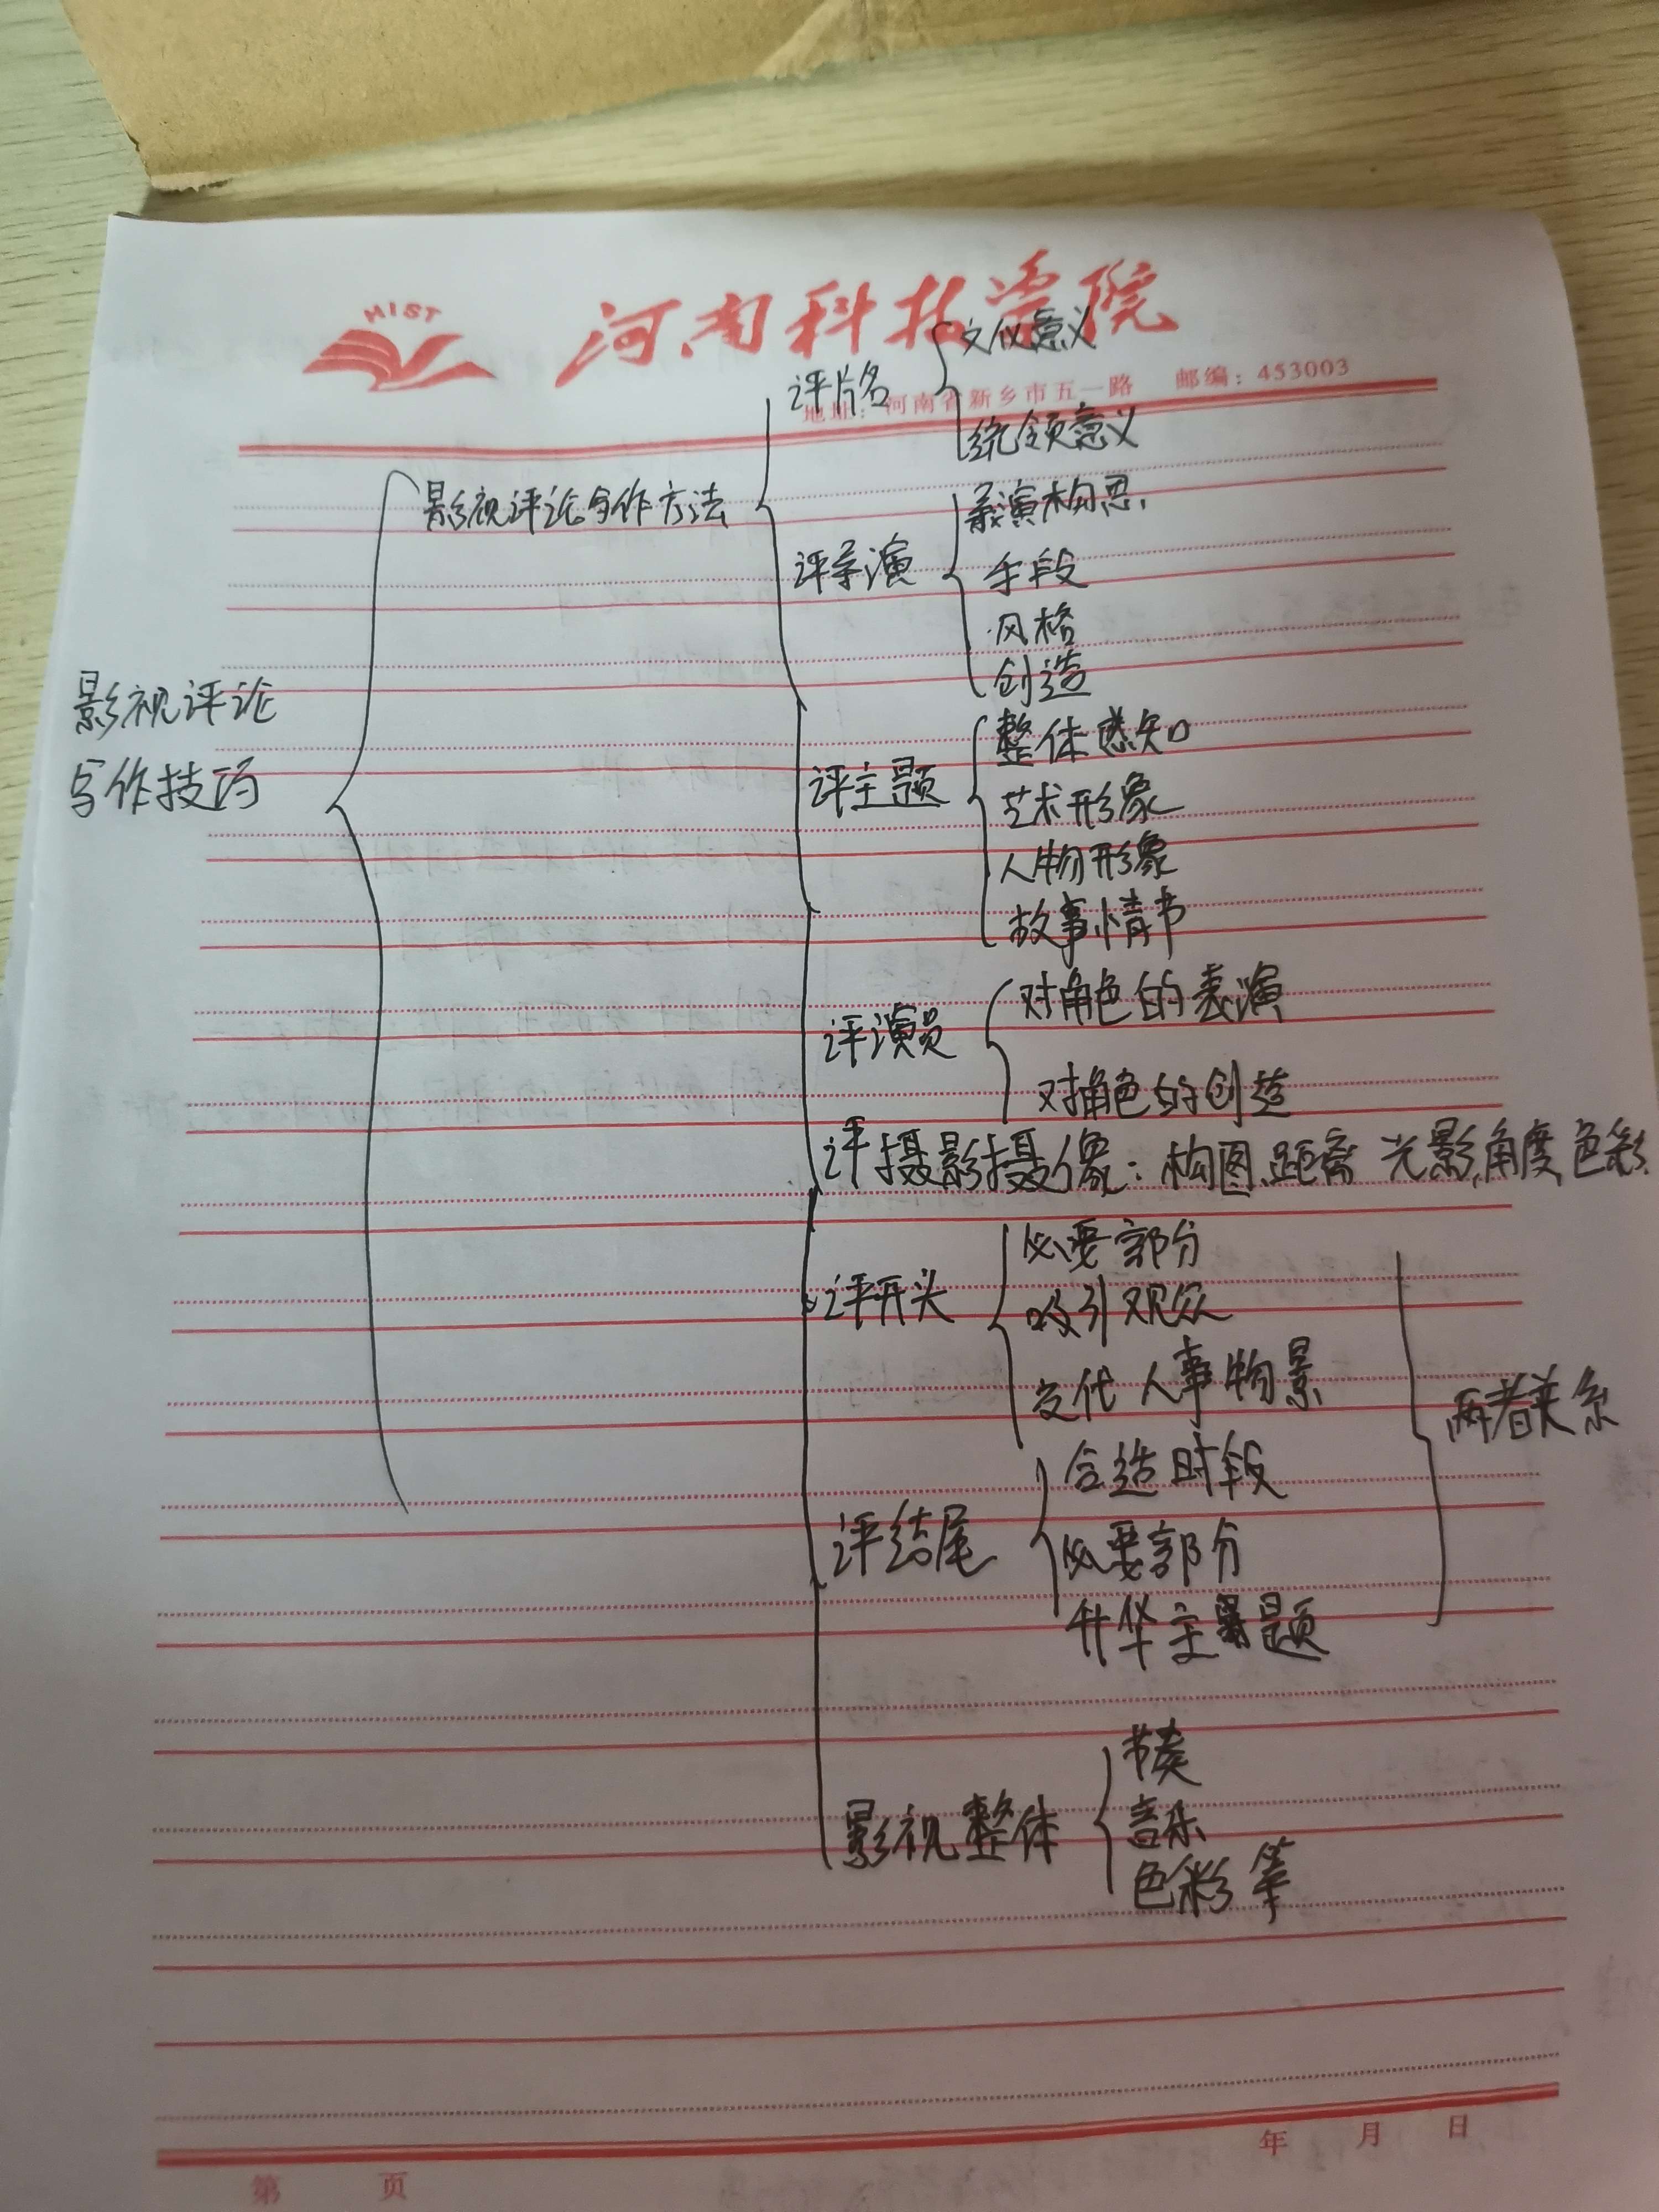 HIST
河南科技学院
地址：河南省新乡市五一路 邮编：453003
影视评论
写作技巧
影视评论写作方法
评片名
文化意义
统领意义
评导演
表演构思
手段
风格
创造
评主题
整体感知
艺术形象
人物形象
故事情节
评演员
对角色的表演
对角色的创造
评摄影摄像：构图、距离 光影、角度、色彩
评开头
必要部分
吸引观众
交代人事物景
评结尾
合适时段
必要部分
升华主题
两者关系
影视整体
节奏
音乐
色彩等
年 月 日
第 页